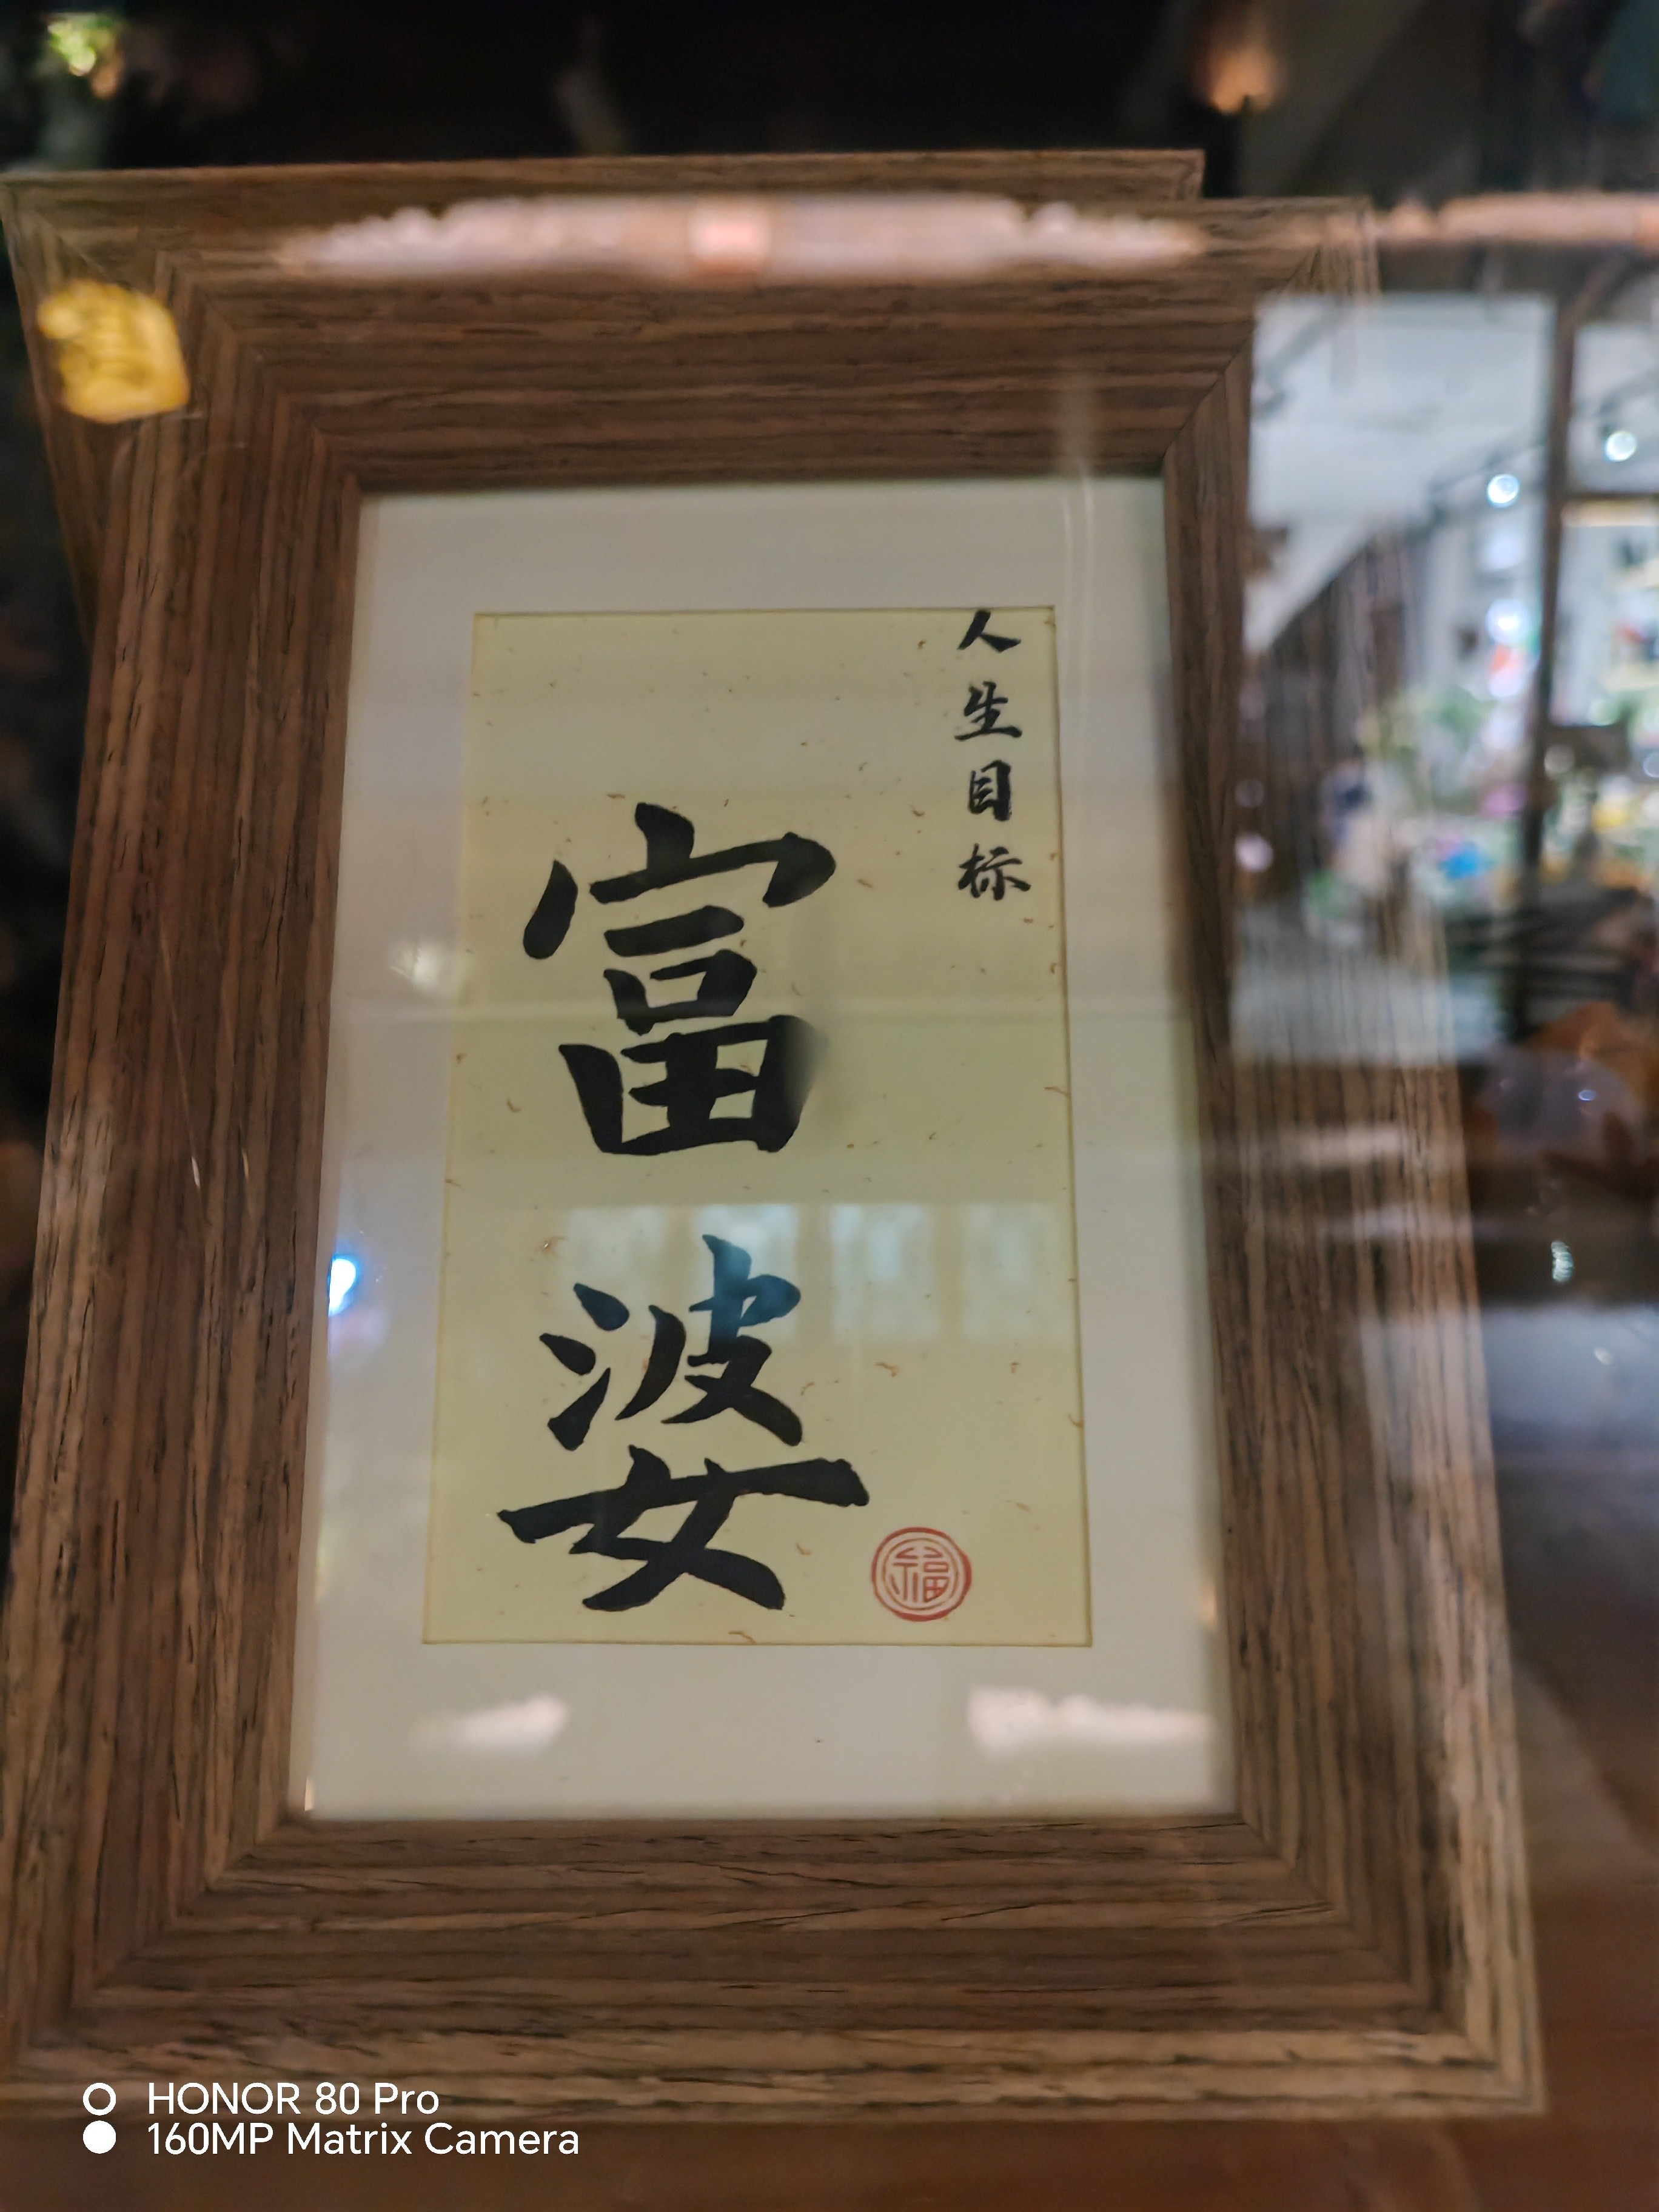 人生目标
富婆
福
HONOR 80 Pro
160MP Matrix Camera